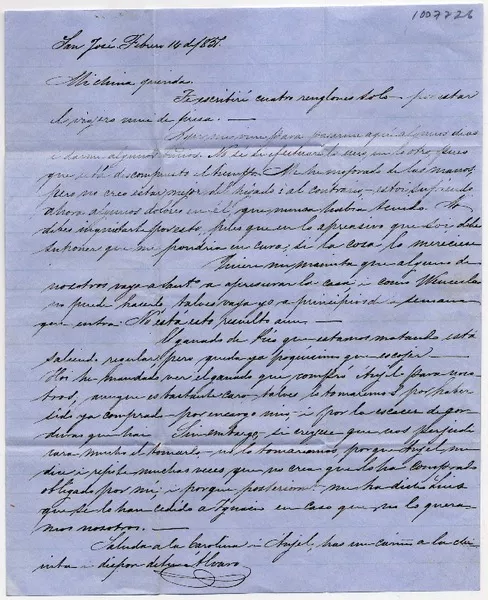 1007226
San José, Febrero 16 d/85
Mi china querida.
Te escribiré cuatro renglones solo por estar
el viajero mui de prisa.
para pasarme aquí algunos dias
i darme algunos baños. No sé si efectuaré lo uno ni lo otro, pues
que se ha descompuesto el tiempo. Me he mejorado de las manos,
pero no creo estar mejor del hígado: al contrario, estoi sufriendo
ahora algunos dolores en él, que nunca habia tenido. No
debes inquietarte por esto, pues que en lo aprensivo que soi debes
suponer que me pondria en cura, si la cosa lo mereciera
Quiere mi mamita que alguno de
nosotros vaya a Sant.º a apresurar la casa; i como Wenceslao
no puede hacerlo, talvez vaya yo a principios de la semana
que entra. No está esto resuelto aun.
El ganado de Rio que estamos matando está
saliendo regular, pero queda ya poquísimo que escojer.
Hoi he mandado ver el ganado que compró Anjel para noso-
tros, aunque es bastante caro, talvez lo tomaremos por haber
sido ya comprado por encargo mio, i por la escasez de gor-
duras que hai. Sin embargo, si creyese que nos perjudi-
cara mucho el tomarlo, no lo tomariamos, porque Anjel me
dice i repite muchas veces que no crea que lo ha comprado
obligado por mí; i porque posterior.te me ha dicho
que se lo han cedido a Ignacio en caso que no lo quera-
mos nosotros.
Saluda a la Carolina i Anjel, haz un cariño a la chi-
nita i dispon de tu Alvaro